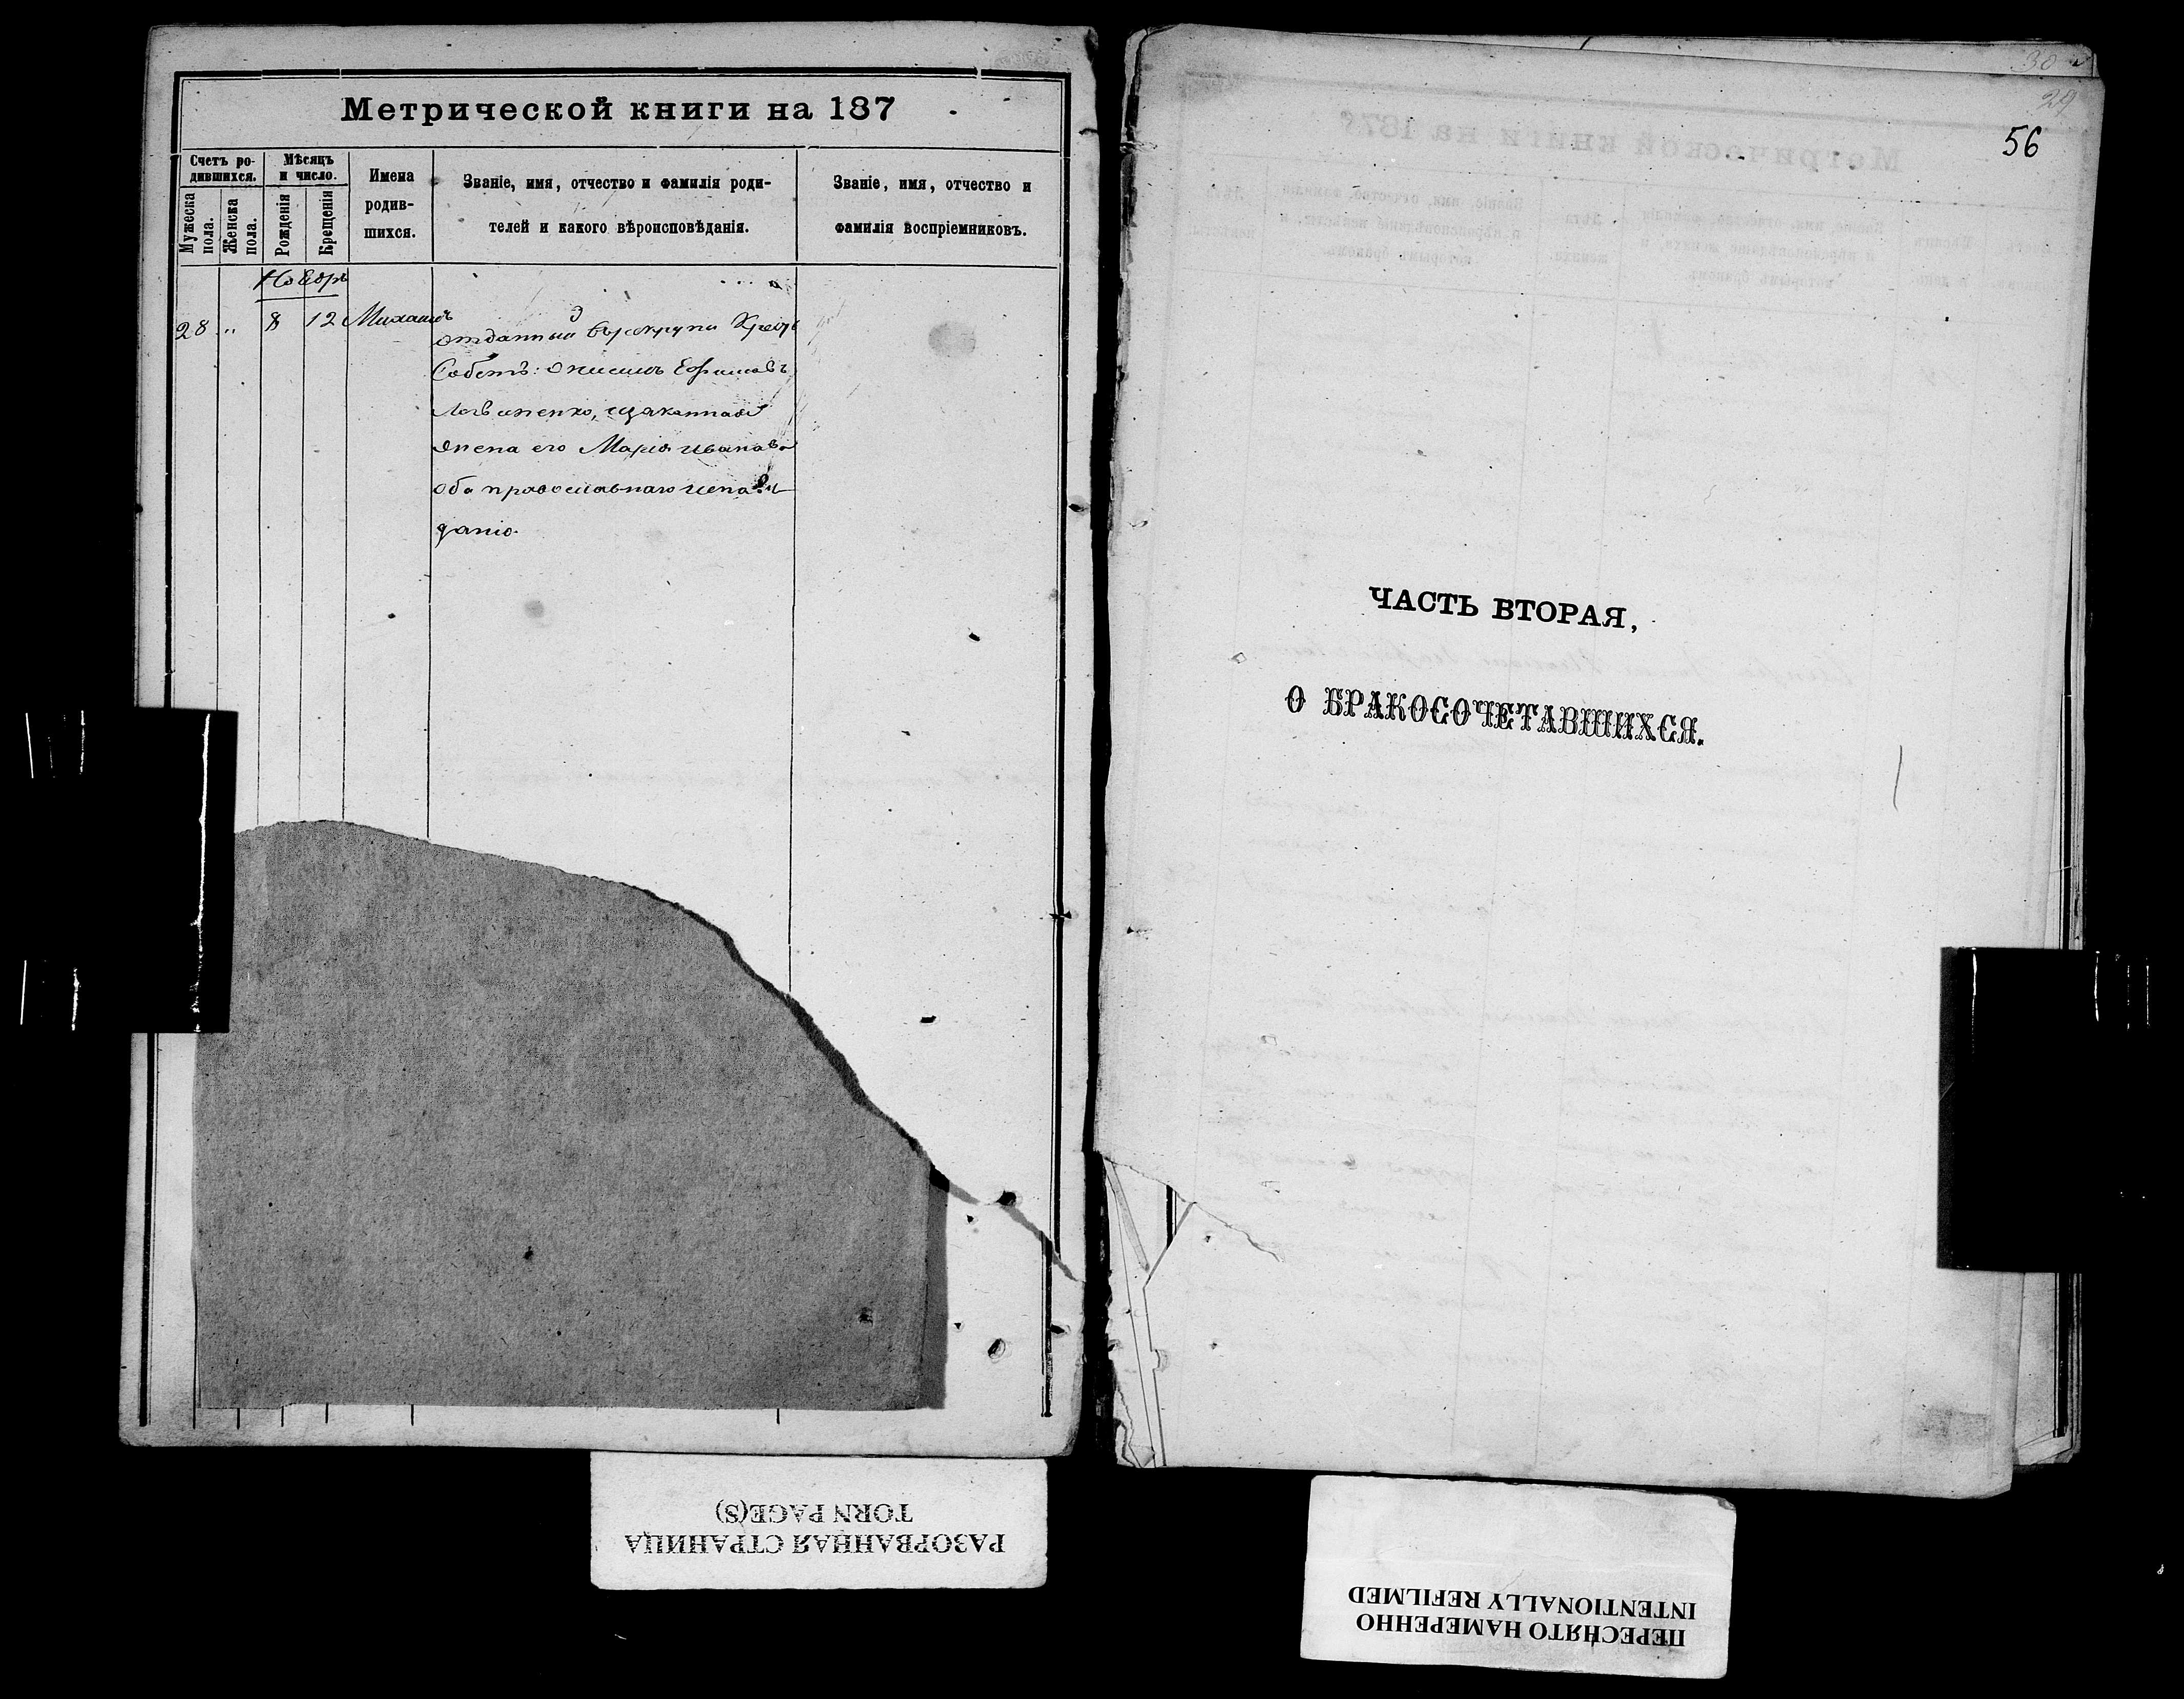 Метрической книги на 187
Счетъ ро-
дившихся.
Мужеска
пола.
Женска
пола.
Мѣсяцъ
и число.
Рожденія
Крещенія
Имена
родив-
шихся.
Званіе, имя, отчество и фамилія роди-
телей и какого вѣроисповѣданія.
Званіе, имя, отчество и
фамилія воспріемниковъ.
Ноября
28 " 8 12 Михаилъ
отданный въ рекруты
Ефимовъ
жена его Марія Иванова
оба православнаго
30
29
56
ЧАСТЬ ВТОРАЯ,
О БРАКОСОЧЕТАВШИХСЯ.
РАЗОРВАННАЯ СТРАНИЦА
TORN PAGE(S)
ПЕРЕСНЯТО НАМЕРЕННО
INTENTIONALLY REFILMED